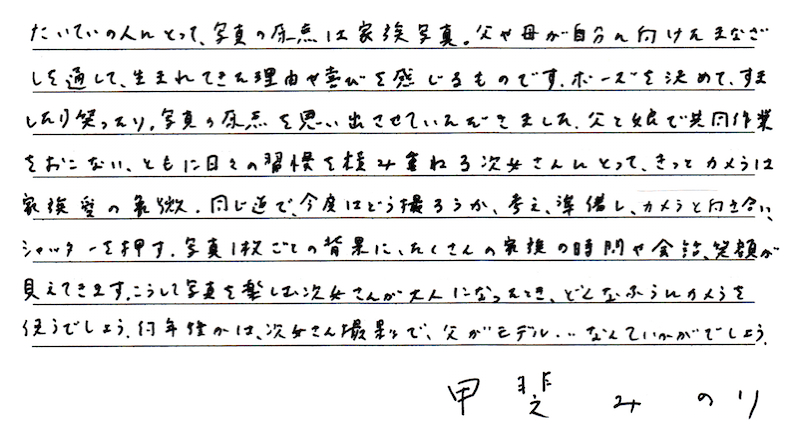 たいていの人にとって、写真の原点は家族写真。父や母が自分へ向けたまなざ
しを通して、生まれてきた理由や喜びを感じるものです。ポーズを決めて、すま
したり笑ったり。写真の原点を思い出させていただきました。父と娘で共同作業
をおこない、ともに日々の習慣を積み重ねる次女さんにとって、きっとカメラは
家族愛の象徴。同じ道で、今度はどう撮ろうか、考え、準備し、カメラと向き合い、
シャッターを押す。写真1枚ごとの背景に、たくさんの家族の時間や会話、笑顔が
見えてきます。こうして写真を楽しむ次女さんが大人になったとき、どんなふうにカメラを
使うでしょう。何年後かは、次女さん撮影で、父がモデル...なんていかがでしょう。
甲斐みのり